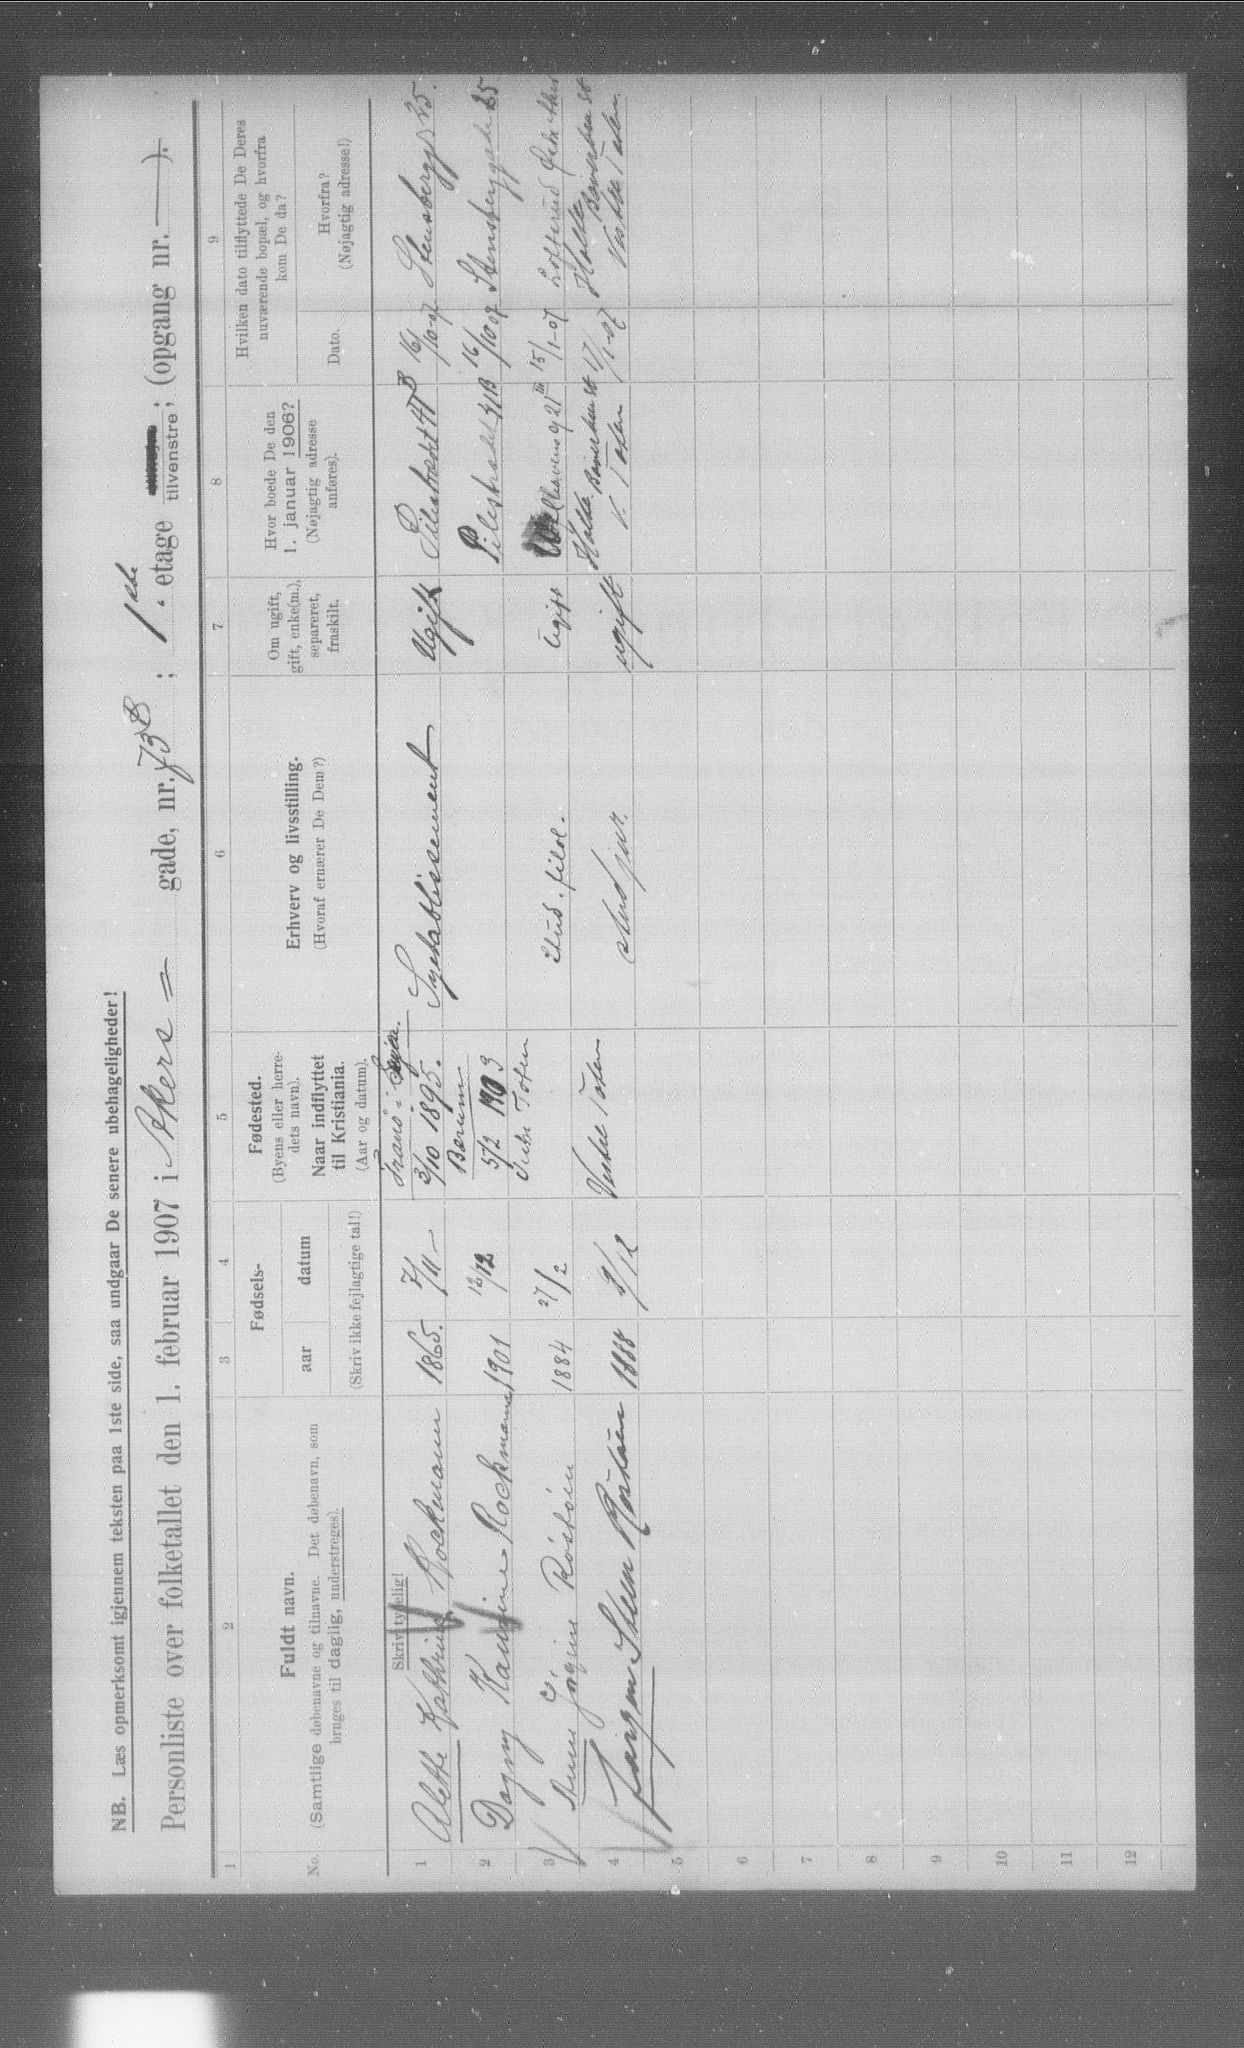 NB. Læs opmerksomt igjennem teksten paa 1ste side, saa undgaar De senere ubehageligheder!
Personliste over folketallet den 1. februar 1907 i Akers = gade, nr. 73 B ; 1ste etage tilvenstre; (opgang nr. — ).
1 2 3 4 5 6 7 8 9
No.
Fuldt navn.
(Samtlige døbenavne og tilnavne. Det døbenavn, som
bruges til daglig, understreges).
Fødsels-
aar datum
(Skriv ikke fejlagtige tal!)
Fødested.
(Byens eller herre-
dets navn).
Naar indflyttet
til Kristiania.
(Aar og datum).
Erhverv og livsstilling.
(Hvoraf ernærer De Dem?)
Om ugift,
gift, enke(m.),
separeret,
fraskilt.
Hvor boede De den
1. januar 1906?
(Nøjagtig adresse
anføres).
Hvilken dato tilflyttede De Deres
nuværende bopæl, og hvorfra
kom De da?
Dato.
Hvorfra?
(Nøjagtig adresse!)
Skriv tydelig!
Tranø i
1 Alette Kathrine Rockmann 1865. 7/11 – 3/10 1895. Syetablissement Ugift Pilestrædet 41 B 16/10-07 Stensbergg 25.
Bærum
2 Dagny Rockmann 1901 12/12 5/2 1903 Pilestrædet 41B 16/10 07 Stensberggaden 25
Østre Toten
3 Røstøen 1884 27/2 stud. filol. Ugift Welhavensg 21 III 15/1-07
4 Jørgen Steen Røstøen 1888 9/12 Vestre Toten stud jur. ugift V. Toten 17/1-07 Vestre Toten
5
6
7
8
9
10
11
12